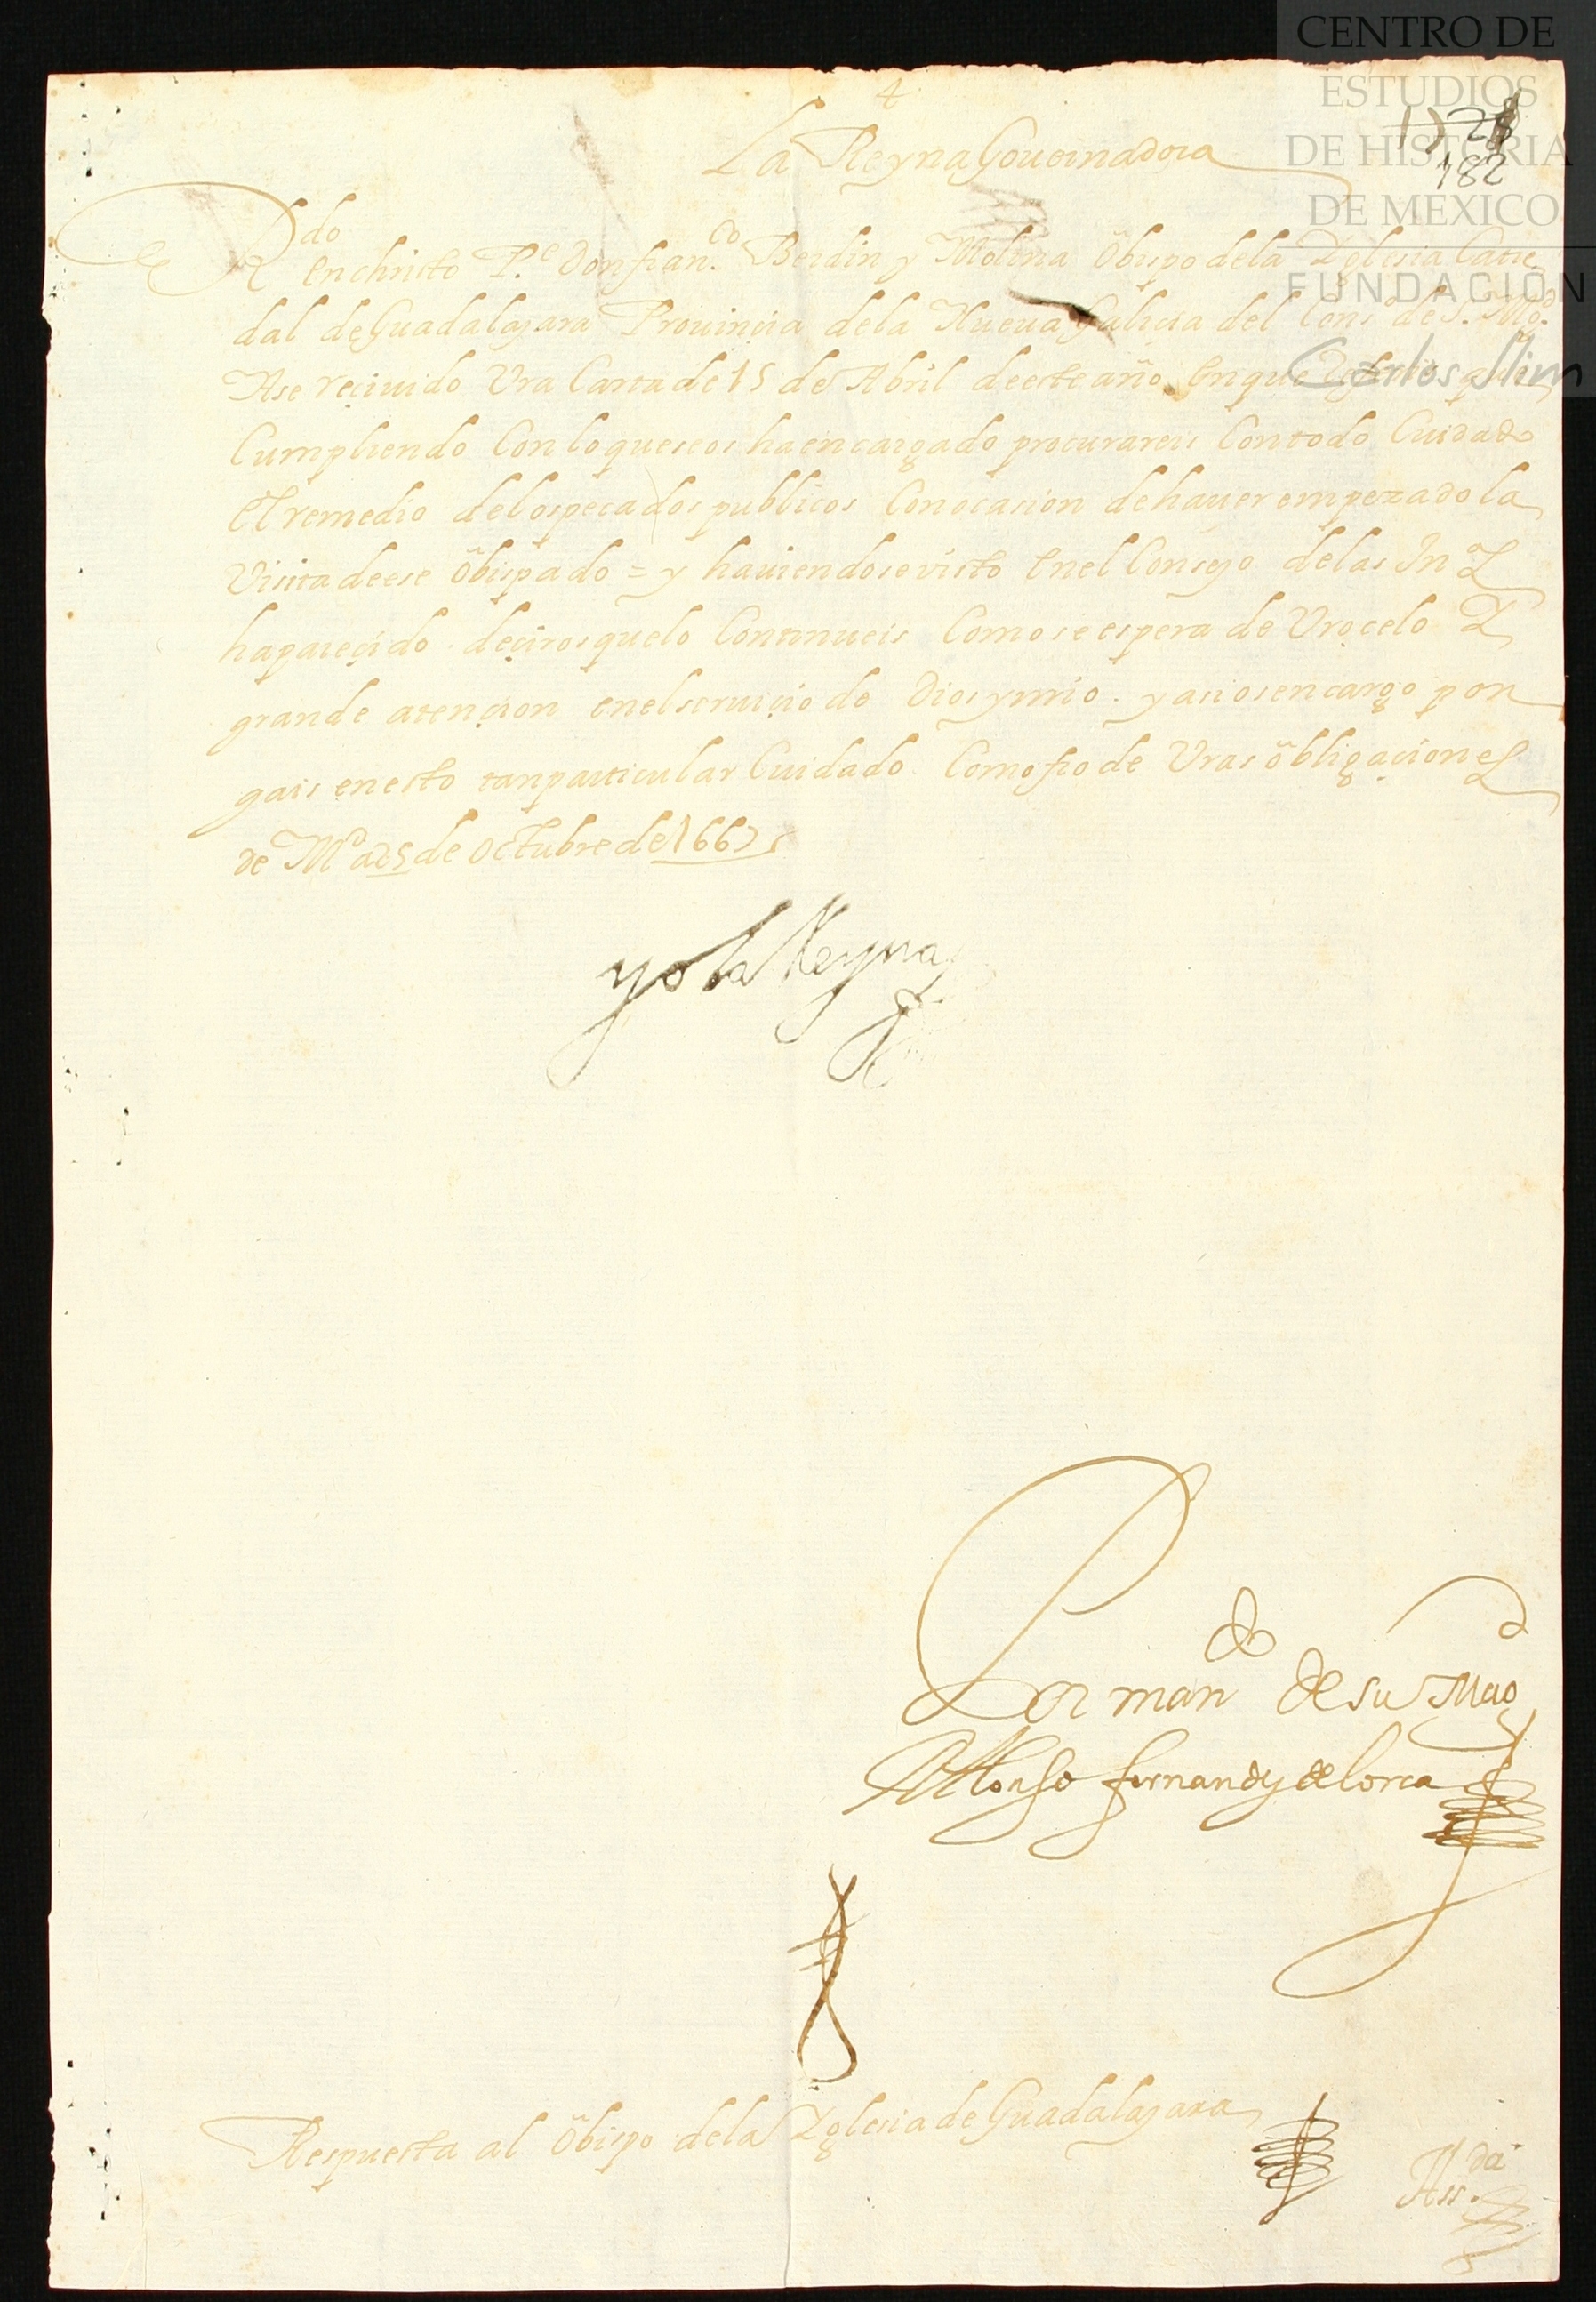 CENTRO DE
ESTUDIOS
DE HISTORIA
DE MEXICO
FUNDACIÓN
Carlos Slim
182
La Reyna Gouernadora
Rdo en christo P.e Don fran.co Berdin y Molina Obispo de la Yglesia Cate
dal de Guadalajara Prouincia de la Nueua Galicia del Cons.o de S. Mgd.
Ase reciuido Vra Carta de 15 de Abril de este año en que que
Cumpliendo Con lo que se os ha encargado procurareis Con todo Cuidado
el remedio de los pecados publicos Con ocasion de hauer empezado la
Visita de ese Obispado = y hauiendose visto en el Consejo de las Ind
ha parecido deciros que lo Continueis Como se espera de Vro celo y
grande atencion en el seruicio de Dios y mio. y asi os encargo pon
gais en esto tan particular Cuidado Como fio de Vras obligaciones
de Md a 25 de Octubre de 1667
yo la Reyna
Por mando de su Magd
Alonso fernandz de lorca
Respuesta al Obispo de la Yglesia de Guadalajara